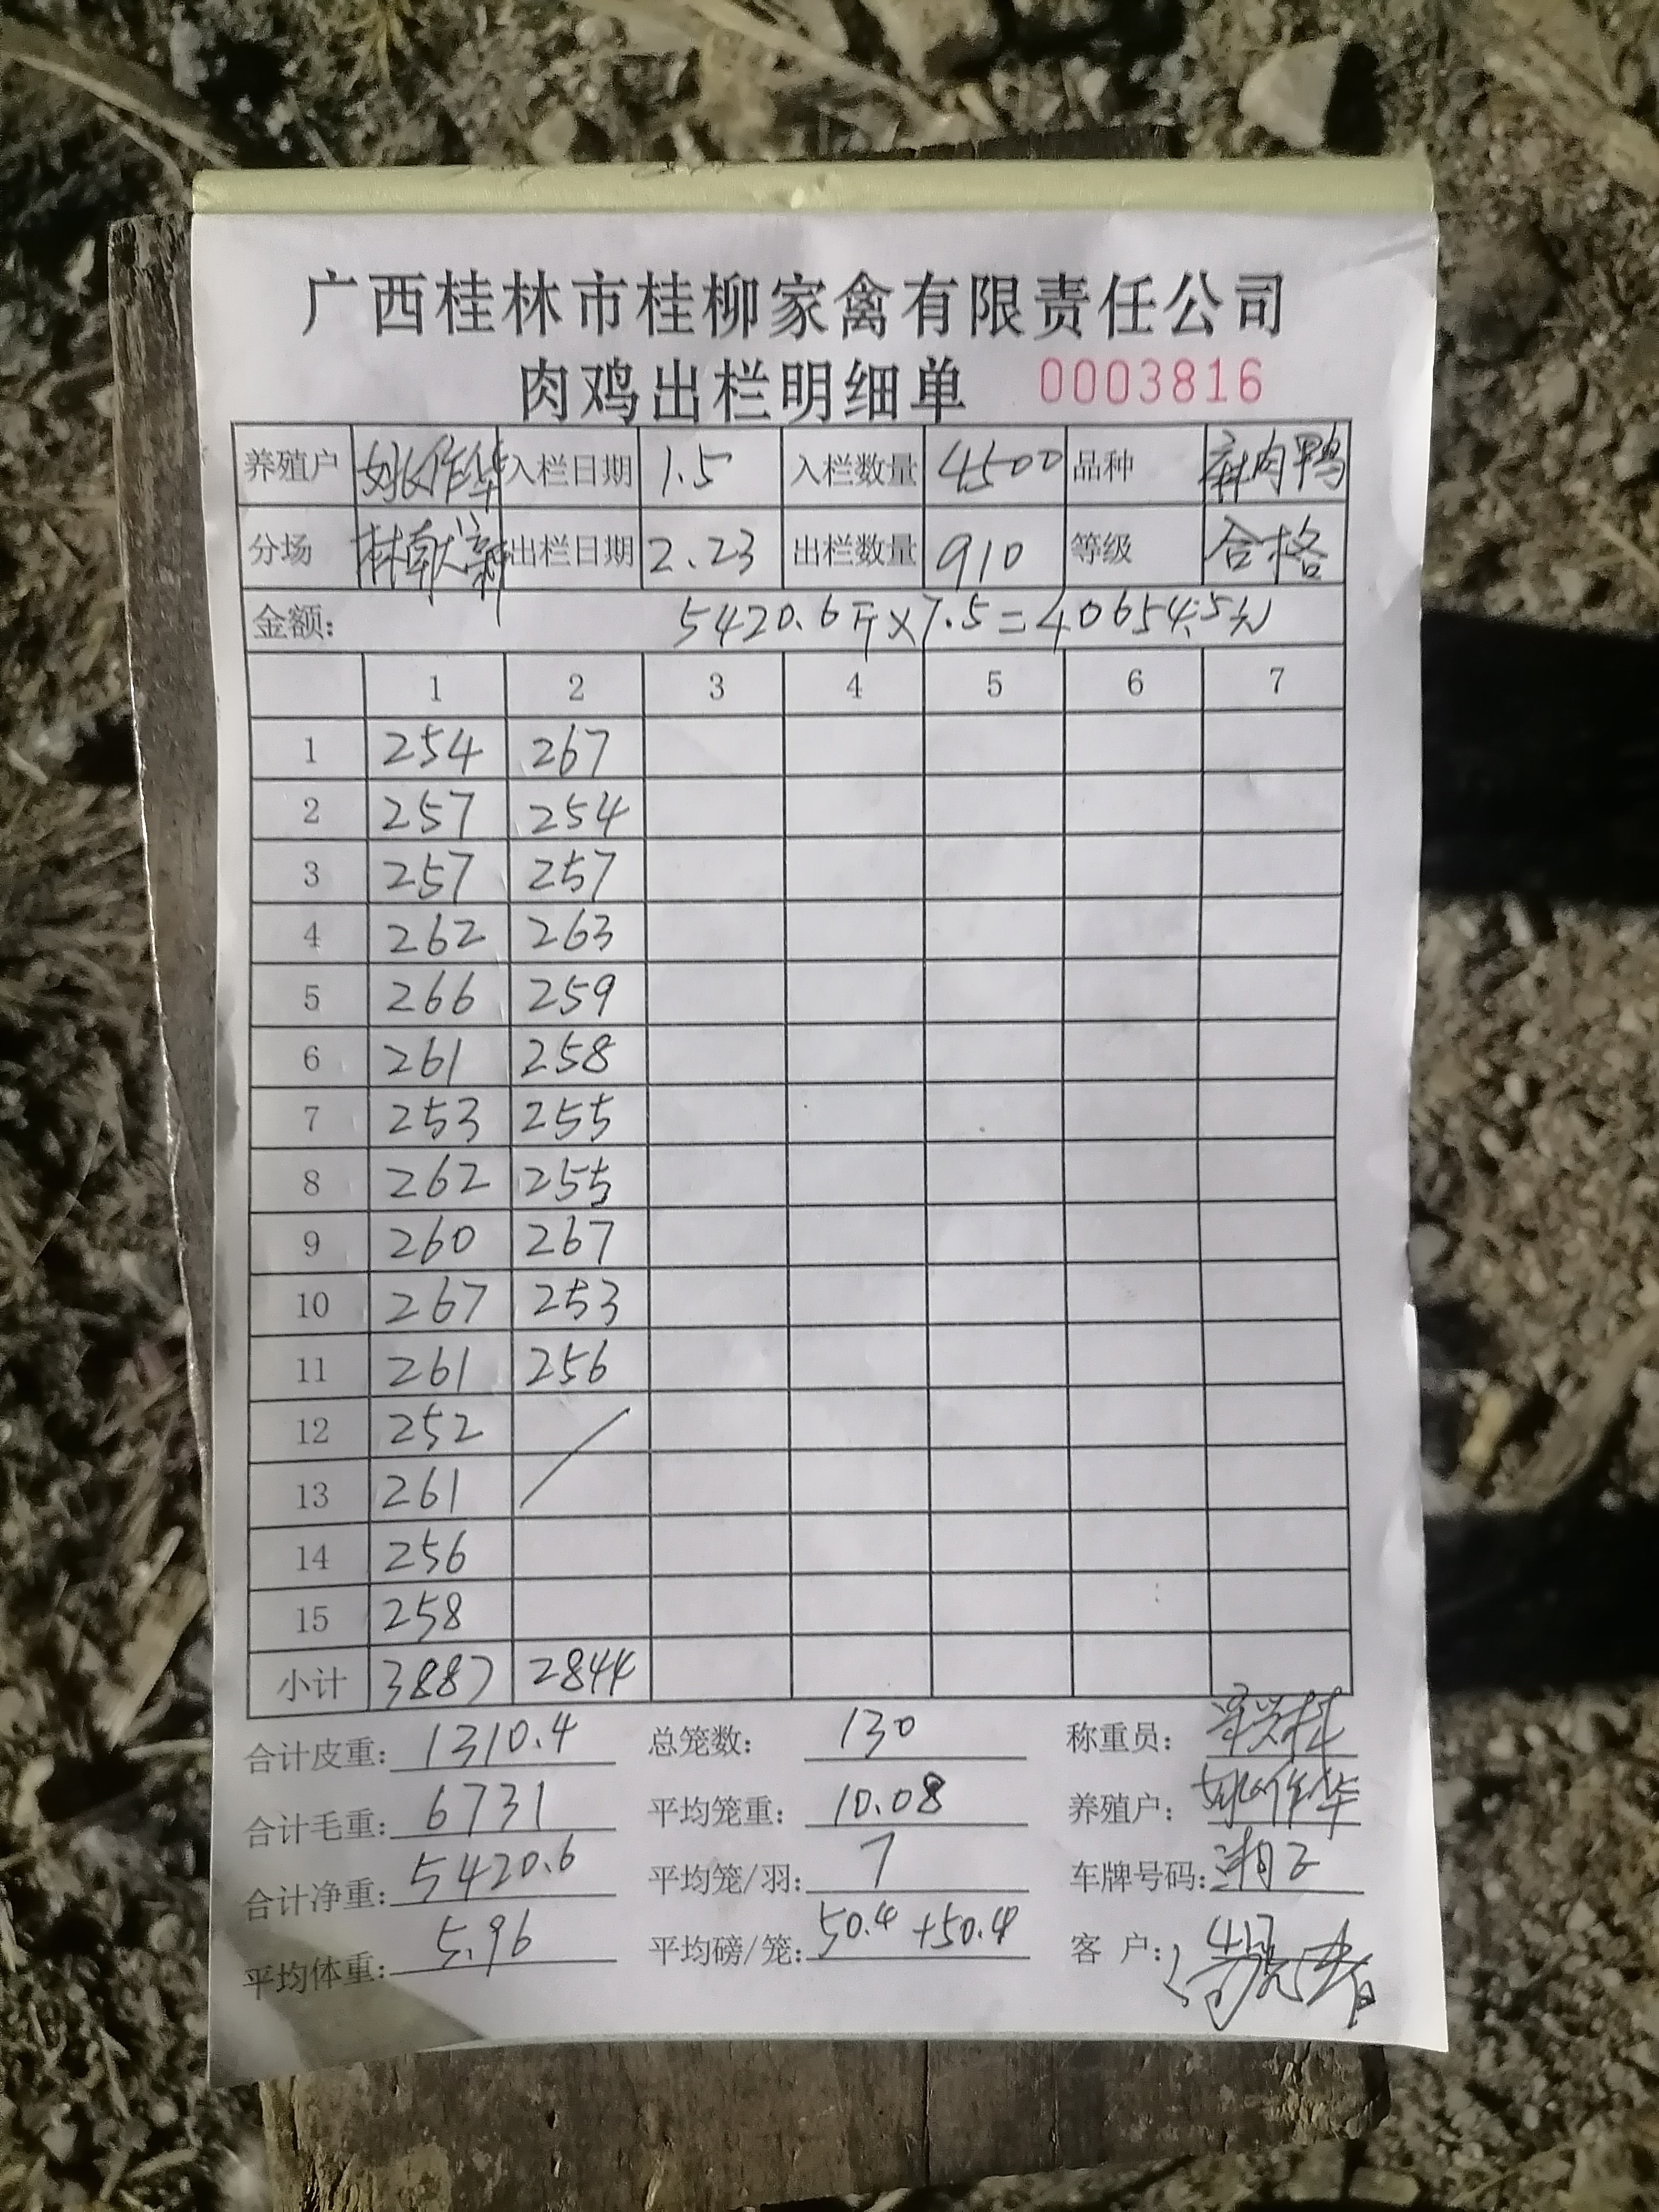 广西桂林市桂柳家禽有限责任公司
肉鸡出栏明细单 0003816
养殖户 姚作华 入栏日期 1.5 入栏数量 4500 品种 麻肉鸭
分场 出栏日期 2.23 出栏数量 910 等级 合格
金额: 5420.6斤×7.5=40654.5元
1 2 3 4 5 6 7
1 254 267
2 257 254
3 257 257
4 262 263
5 266 259
6 261 258
7 253 255
8 262 255
9 260 267
10 267 253
11 261 256
12 252
13 261
14 256
15 258
小计 3887 2844
合计皮重: 1310.4 总笼数: 130 称重员:
合计毛重: 6731 平均笼重: 10.08 养殖户: 姚作华
合计净重: 5420.6 平均笼/羽: 7 车牌号码:
平均体重: 5.96 平均磅/笼: 50.4+50.4 客户: